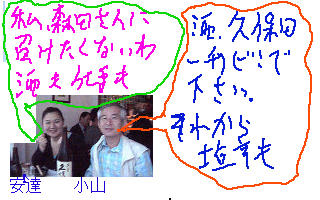 私、森田さんに
負けたくないわ
酒も仕事も
酒、久保田
一升びんで
下さい。
それから
塩辛も
安達 小山